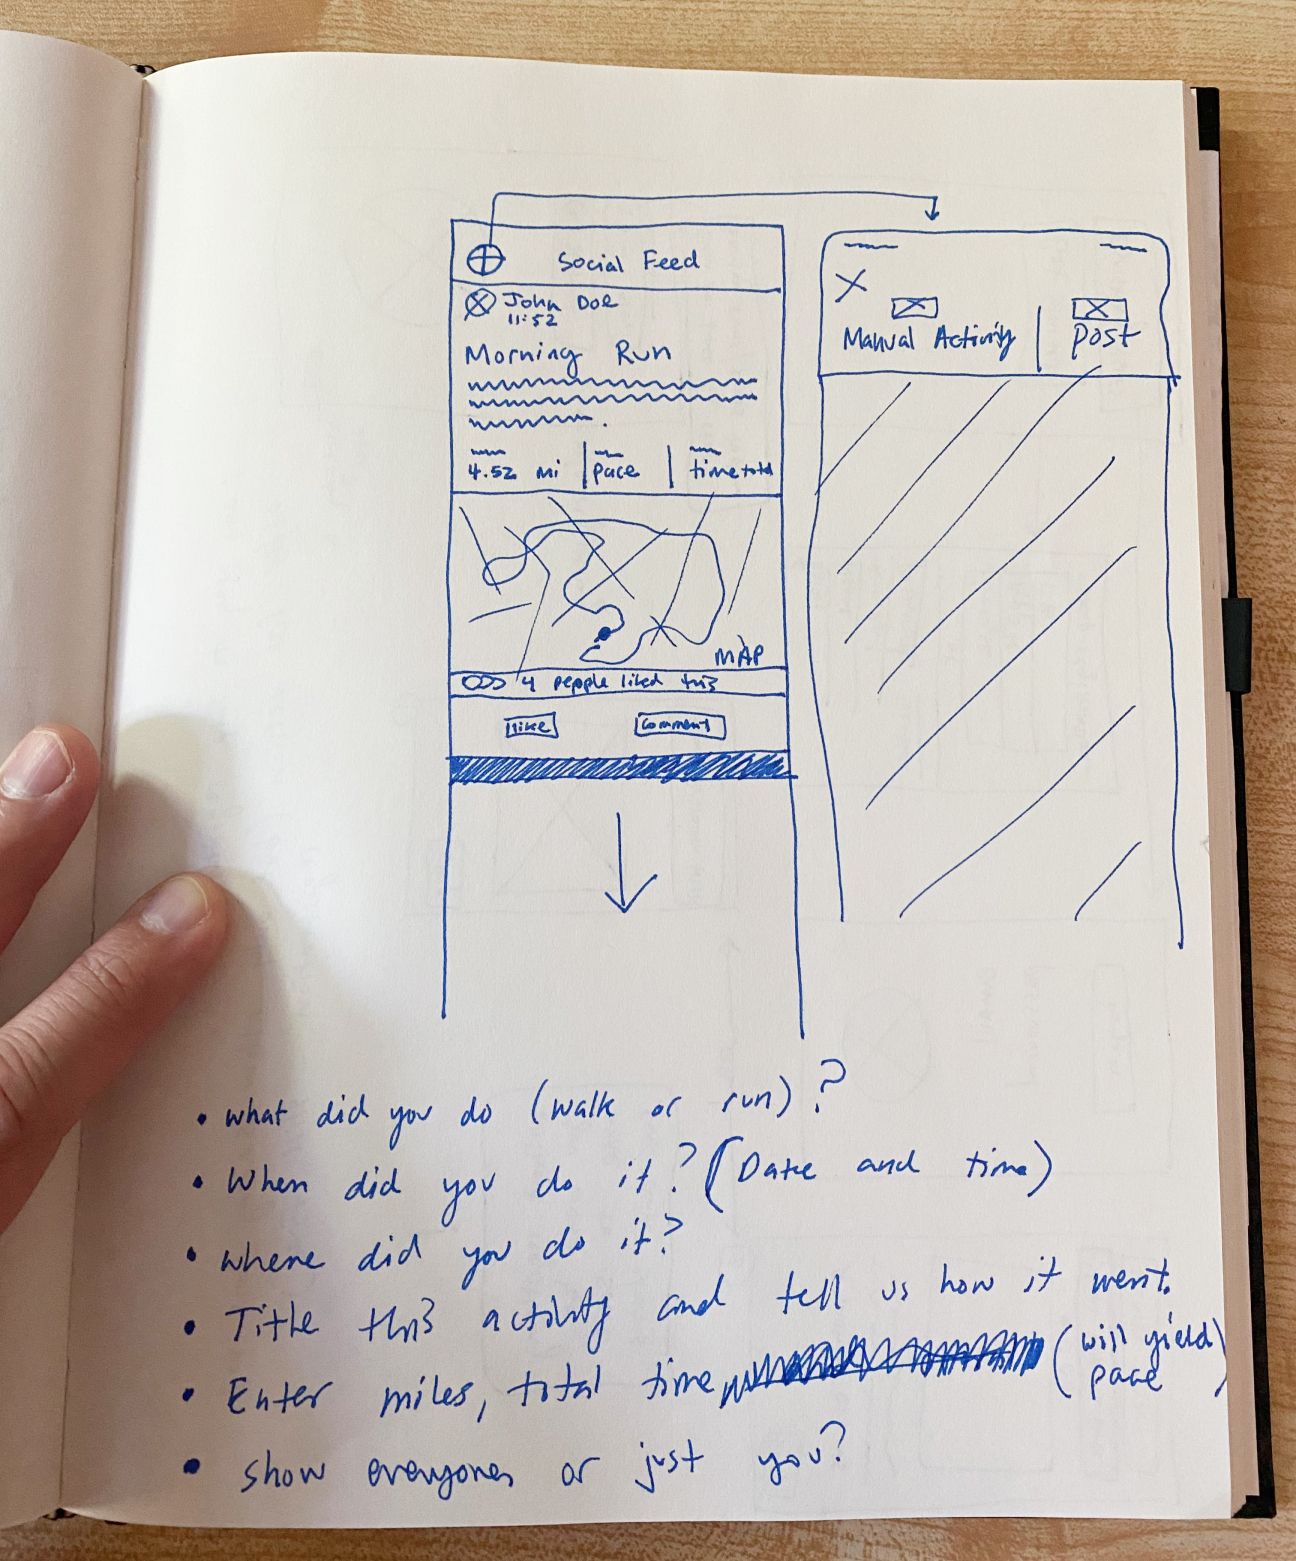 Social Feed
John Doe
11:52
Morning Run
4.52 mi | pace | time total
MAP
4 people liked this
like
comment
Manual Activity | post
• what did you do (walk or run)?
• When did you do it? (Date and time)
• where did you do it?
• Title this activity and tell us how it went.
• Enter miles, total time (will yield pace)
• show everyone or just you?